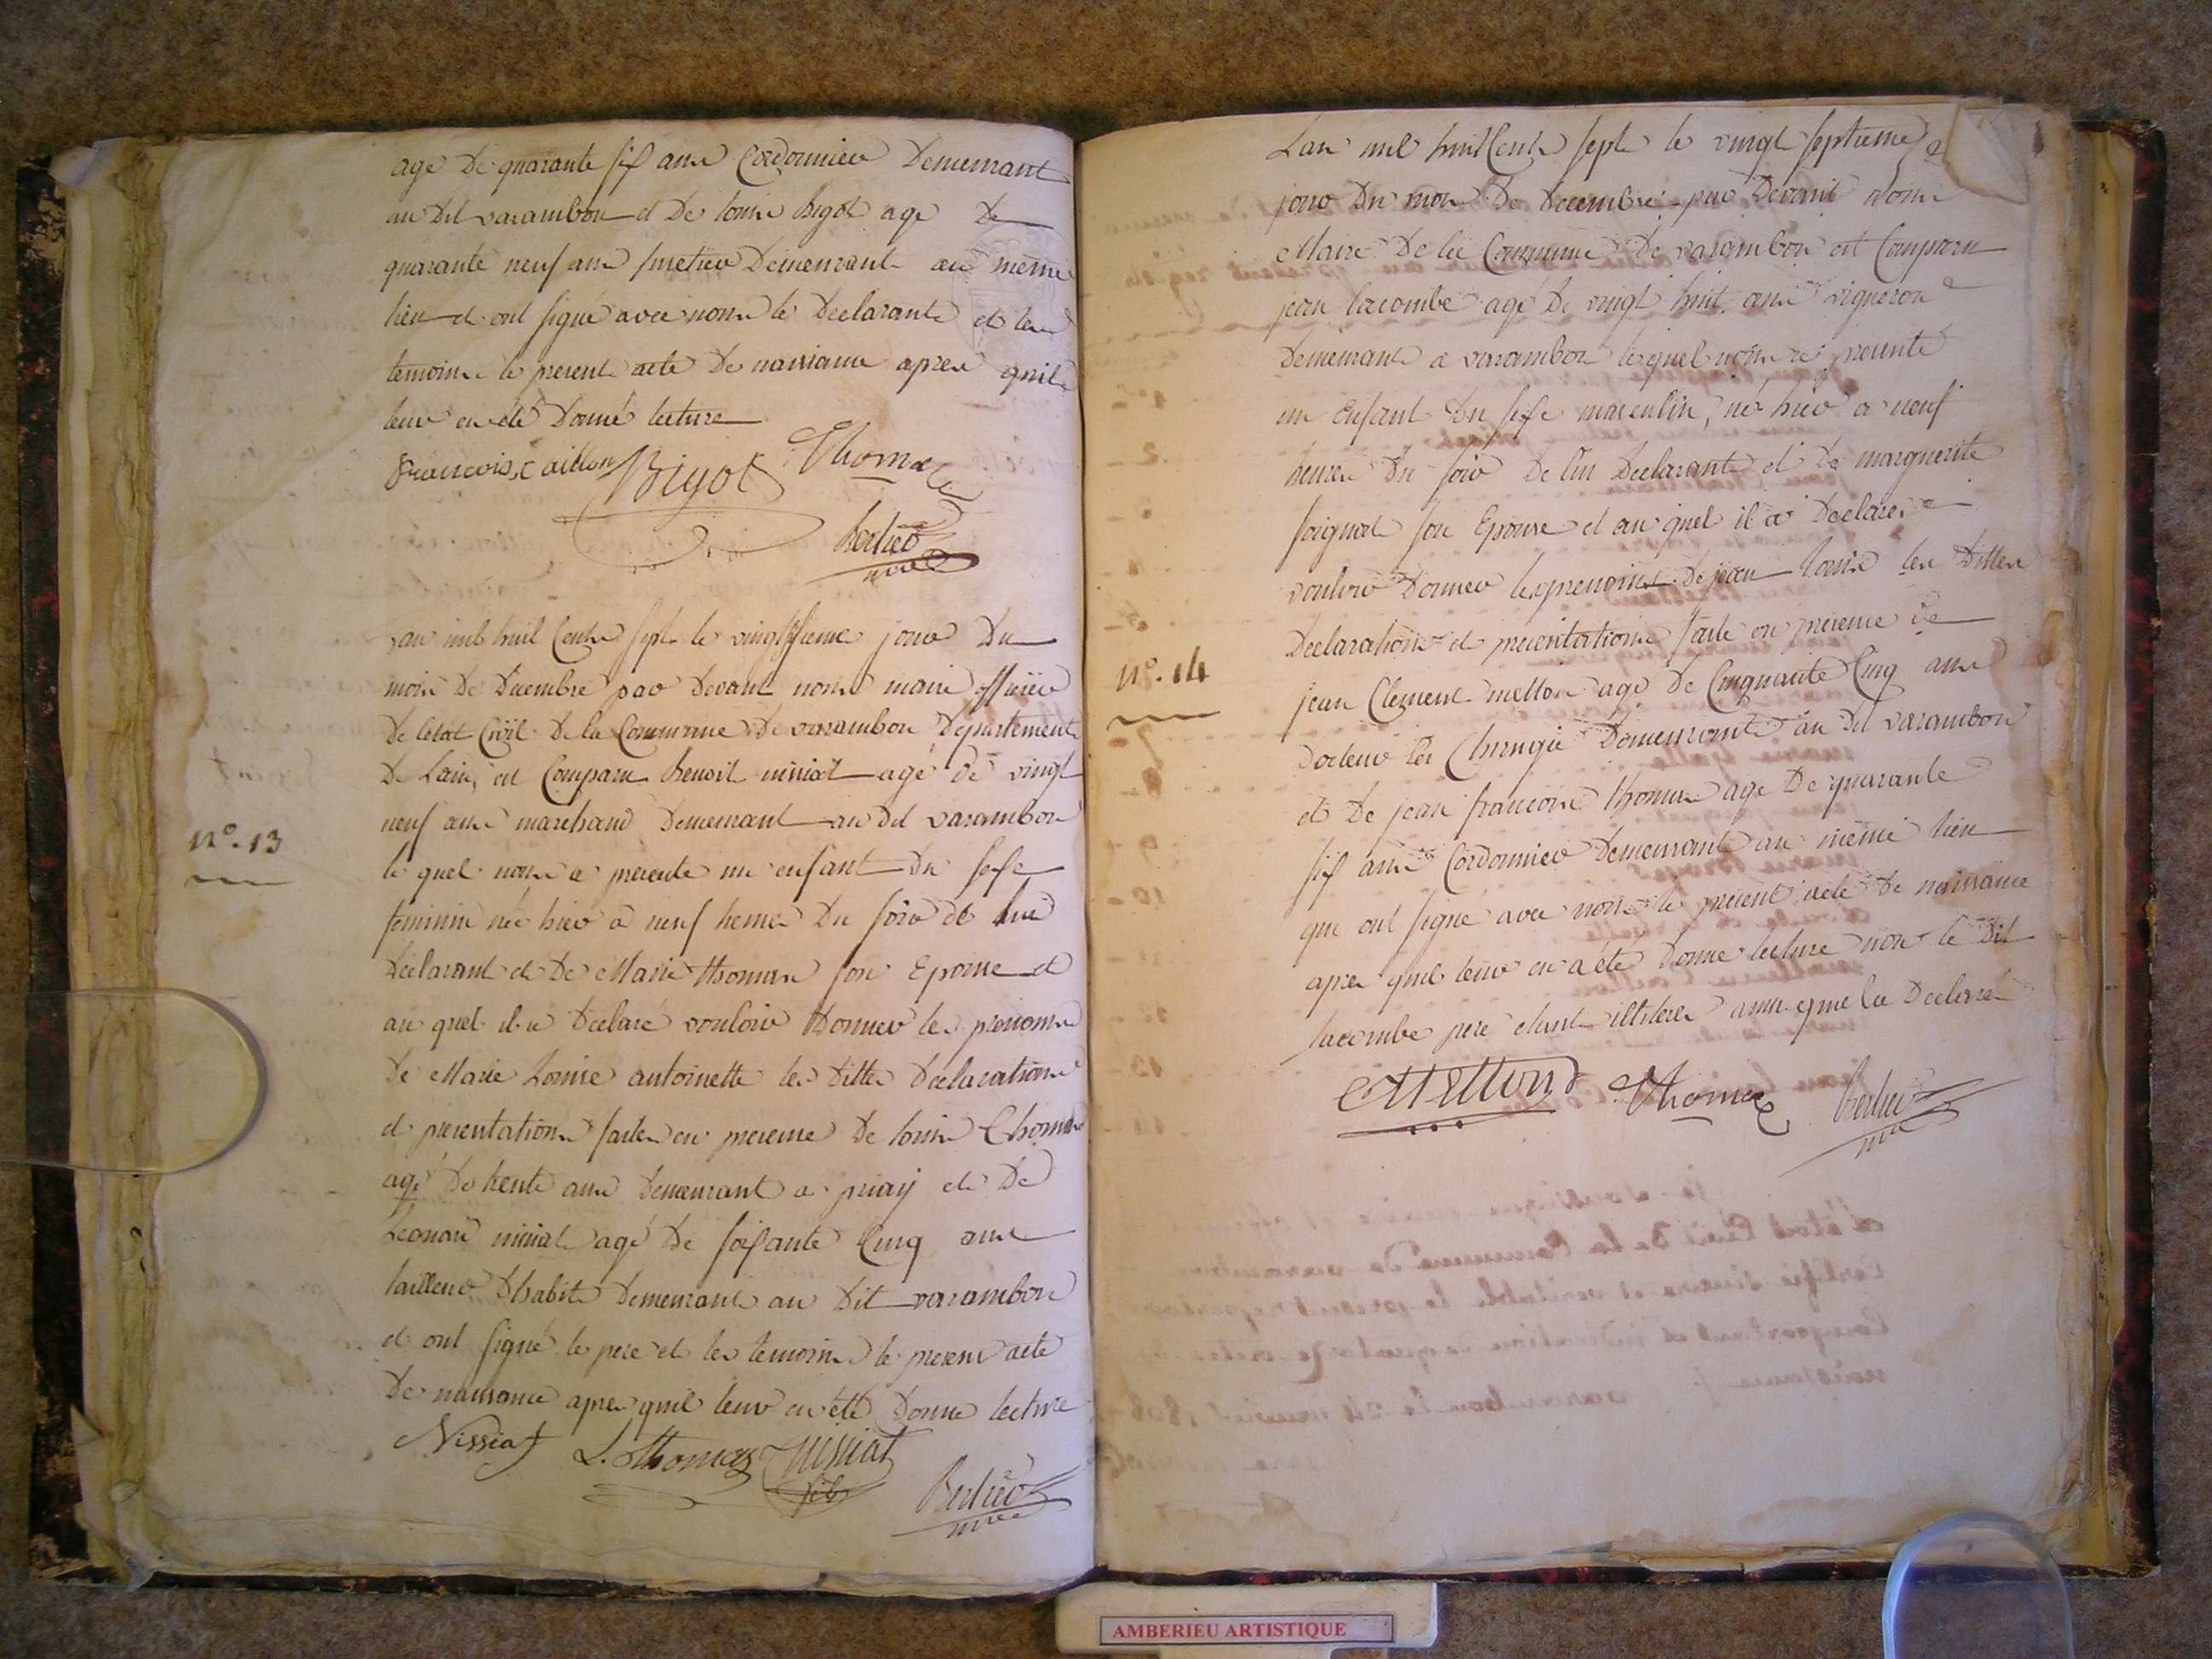 age de quarante six ans Cordonnier Demeurant
au dit varambon et De louis Bigot age de
quarante neuf ans Demeurant au même
lieu et ont signé avec nous le Declarants et les
temoins le present acte De naissance apres quil
leur en été Donné lecture
Francois Caillon Bigot Thomas
Berlier
mre
Lan mil huit Cents sept le vingt sixieme jour Du
mois De Decembre par devant nous maire officier
De letat Civil De la Commune De varambon Departement
De Lain, est Comparu Benoit nissiat agé de vingt
neuf ans marchand Demeurant au dit varambon
N°. 13
le quel nous a presenté un enfant Du sexe
feminin née hier a neuf heures Du soir de lui
Declarant et De Marie thomas son Epouse et
au quel il a Declaré vouloir Donner les prenoms
De Marie Louise antoinette les dittes Declarations
et presentations faites en presence De louis Thomas
agé De trente ans Demeurant a priay et De
Leonard nissiat agé De soixante Cinq ans
tailleur Dhabits Demeurant au Dit varambon
et ont signé le pere et les temoins le present acte
De naissance apres quil leur en été Donné lecture
Nissiat L. Thomas Nissiat
fils
Berlier
mre
Lan mil huit Cents sept le vingt septieme
jour Du mois De Decembre par Devant Nous
Maire De la Commune De varambon est Comparu
jean lacombe agé De vingt huit ans vigneron
Demeurant a varambon lequel nous a presenté
un Enfant Du sexe masculin, né hier a neuf
heures Du soir De lui Declarant et De marguerite
soignat son Epouse et au quel il a Declaré
vouloir Donner les prenoms De jean louis les Dittes
Declarations et presentations faite en presence de
N°. 14
jean Clement mellon agé De Cinquante Cinq ans
docteur En Chirurgie Demeurant au Dit varambon
et De jean francois thomas agé De quarante
six ans Cordonnier Demeurant au même lieu
qui ont signé avec nous le present acte De naissance
apres quil leur en a été Donné lecture non le Dit
lacombe pere etant illitere ainsi que la Declaré
Mellon Thomas Berlier
mre
AMBERIEU ARTISTIQUE